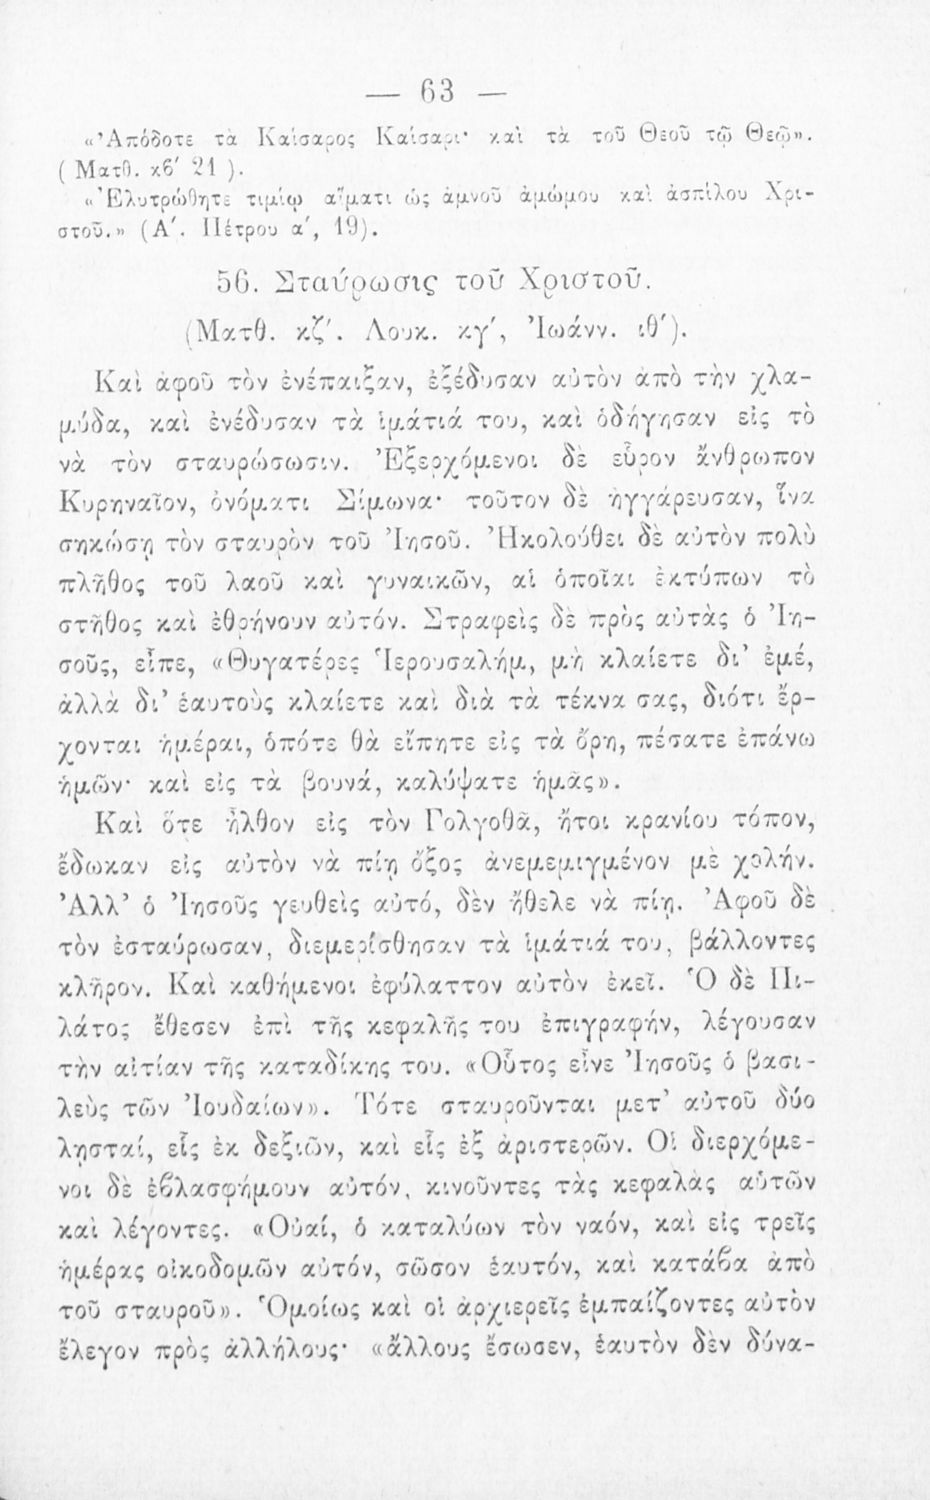 — 63 —
«Ἀπόδοτε τὰ Καίσαρος Καίσαρι· καὶ τὰ τοῦ Θεοῦ τῷ Θεῷ».
(Ματθ. κϐ′ 21).
«Ἐλυτρώθητε τιμίῳ αἵματι ὡς ἀμνοῦ ἀμώμου καὶ ἀσπίλου Χρι-
στοῦ.» (Α′. Πέτρου α′, 19).
56. Σταύρωσις τοῦ Χριστοῦ.
(Ματθ. κζ′. Λουκ. κγ′, Ἰωάνν. ιθ′).
Καὶ ἀφοῦ τὸν ἐνέπαιξαν, ἐξέδυσαν αὐτὸν ἀπὸ τὴν χλα-
μύδα, καὶ ἐνέδυσαν τὰ ἱμάτιά του, καὶ ὁδήγησαν εἰς τὸ
νὰ τὸν σταυρώσωσιν. Ἐξερχόμενοι δὲ εὗρον ἄνθρωπον
Κυρηναῖον, ὀνόματι Σίμωνα· τοῦτον δὲ ἠγγάρευσαν, ἵνα
σηκώσῃ τὸν σταυρὸν τοῦ Ἰησοῦ. Ἠκολούθει δὲ αὐτὸν πολὺ
πλῆθος τοῦ λαοῦ καὶ γυναικῶν, αἱ ὁποῖαι ἐκτύπων τὸ
στῆθος καὶ ἐθρήνουν αὐτόν. Στραφεὶς δὲ πρὸς αὐτὰς ὁ Ἰη-
σοῦς, εἶπε, «Θυγατέρες Ἱερουσαλήμ, μὴ κλαίετε δι’ ἐμέ,
ἀλλὰ δι’ ἑαυτοὺς κλαίετε καὶ διὰ τὰ τέκνα σας, διότι ἔρ-
χονται ἡμέραι, ὁπότε θὰ εἴπητε εἰς τὰ ὄρη, πέσατε ἐπάνω
ἡμῶν· καὶ εἰς τὰ βουνά, καλύψατε ἡμᾶς».
Καὶ ὅτε ἦλθον εἰς τὸν Γολγοθᾶ, ἤτοι κρανίου τόπον,
ἔδωκαν εἰς αὐτὸν νὰ πίῃ ὄξος ἀνεμεμιγμένον μὲ χολήν.
Ἀλλ’ ὁ Ἰησοῦς γευθεὶς αὐτό, δὲν ἤθελε νὰ πίῃ. Ἀφοῦ δὲ
τὸν ἐσταύρωσαν, διεμερίσθησαν τὰ ἱμάτιά του, βάλλοντες
κλῆρον. Καὶ καθήμενοι ἐφύλαττον αὐτὸν ἐκεῖ. Ὁ δὲ Πι-
λάτος ἔθεσεν ἐπὶ τῆς κεφαλῆς του ἐπιγραφήν, λέγουσαν
τὴν αἰτίαν τῆς καταδίκης του. «Οὗτος εἶνε Ἰησοῦς ὁ βασι-
λεὺς τῶν Ἰουδαίων». Τότε σταυροῦνται μετ’ αὐτοῦ δύο
λῃσταί, εἷς ἐκ δεξιῶν, καὶ εἷς ἐξ ἀριστερῶν. Οἱ διερχόμε-
νοι δὲ ἐϐλασφήμουν αὐτόν, κινοῦντες τὰς κεφαλὰς αὑτῶν
καὶ λέγοντες. «Οὐαί, ὁ καταλύων τὸν ναόν, καὶ εἰς τρεῖς
ἡμέρας οἰκοδομῶν αὐτόν, σῶσον ἑαυτόν, καὶ κατάϐα ἀπὸ
τοῦ σταυροῦ». Ὁμοίως καὶ οἱ ἀρχιερεῖς ἐμπαίζοντες αὐτὸν
ἔλεγον πρὸς ἀλλήλους· «ἄλλους ἔσωσεν, ἑαυτὸν δὲν δύνα-